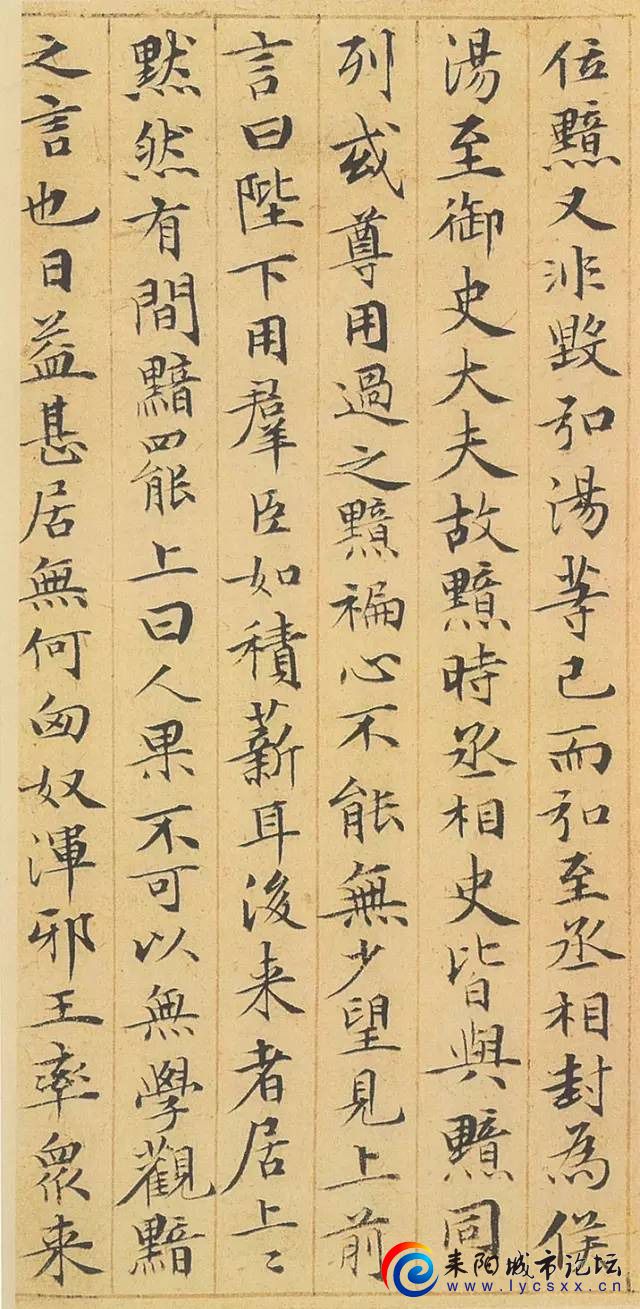 位黯又非毀弘湯等已而弘至丞相封為侯
湯至御史大夫故黯時丞相史皆與黯同
列或尊用過之黯褊心不能無少望見上前
言曰陛下用羣臣如積薪耳後来者居上〻
黙然有間黯罷上曰人果不可以無學觀黯
之言也日益甚居無何匈奴渾邪王率衆来
耒阳城市论坛
www.lycsxx.cn